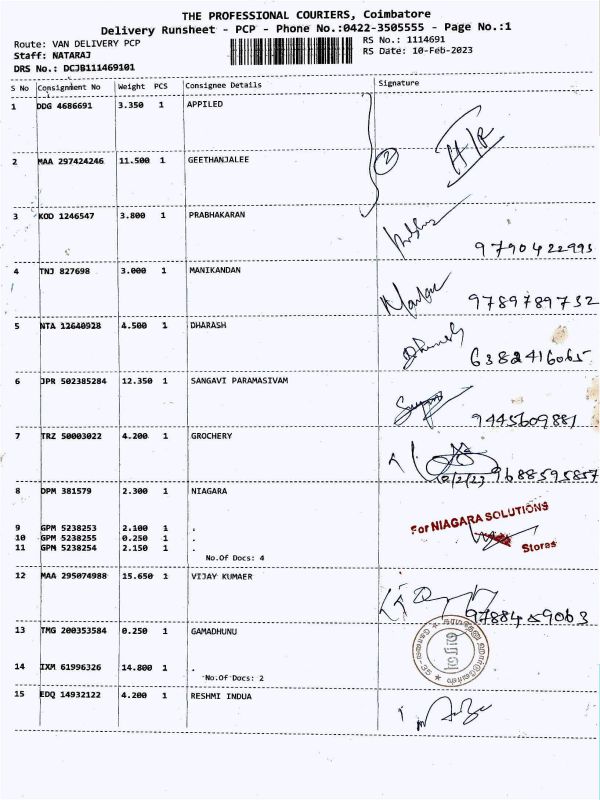 THE PROFESSIONAL COURIERS, Coimbatore
Delivery Runsheet - PCP - Phone No.:0422-3505555 - Page No.:1
Route: VAN DELIVERY PCP RS No.: 1114691
Staff: NATARAJ RS Date: 10-Feb-2023
DRS No.: DCJB111469101
S No Consignment No Weight PCS Consignee Details Signature
1 DDG 4686691 3.350 1 APPILED
2 MAA 297424246 11.500 1 GEETHANJALEE 2
3 KOD 1246547 3.800 1 PRABHAKARAN
9790422993
4 TNJ 827698 3.000 1 MANIKANDAN
9789789732
5 NTA 12640928 4.500 1 DHARASH
6382416065
6 JPR 502385284 12.350 1 SANGAVI PARAMASIVAM
9445609881
7 TRZ 50003022 4.200 1 GROCHERY
10/2/23 9688595857
8 DPM 381579 2.300 1 NIAGARA
For NIAGARA SOLUTIONS
9 GPM 5238253 2.100 1 .
10 GPM 5238255 0.250 1 .
11 GPM 5238254 2.150 1 .
Stores
No.Of Docs: 4
12 MAA 295074988 15.650 1 VIJAY KUMAER
9788459063
13 TMG 200353584 0.250 1 GAMADHUNU
14 IXM 61996326 14.800 1 .
No.Of Docs: 2
15 EDQ 14932122 4.200 1 RESHMI INDUA